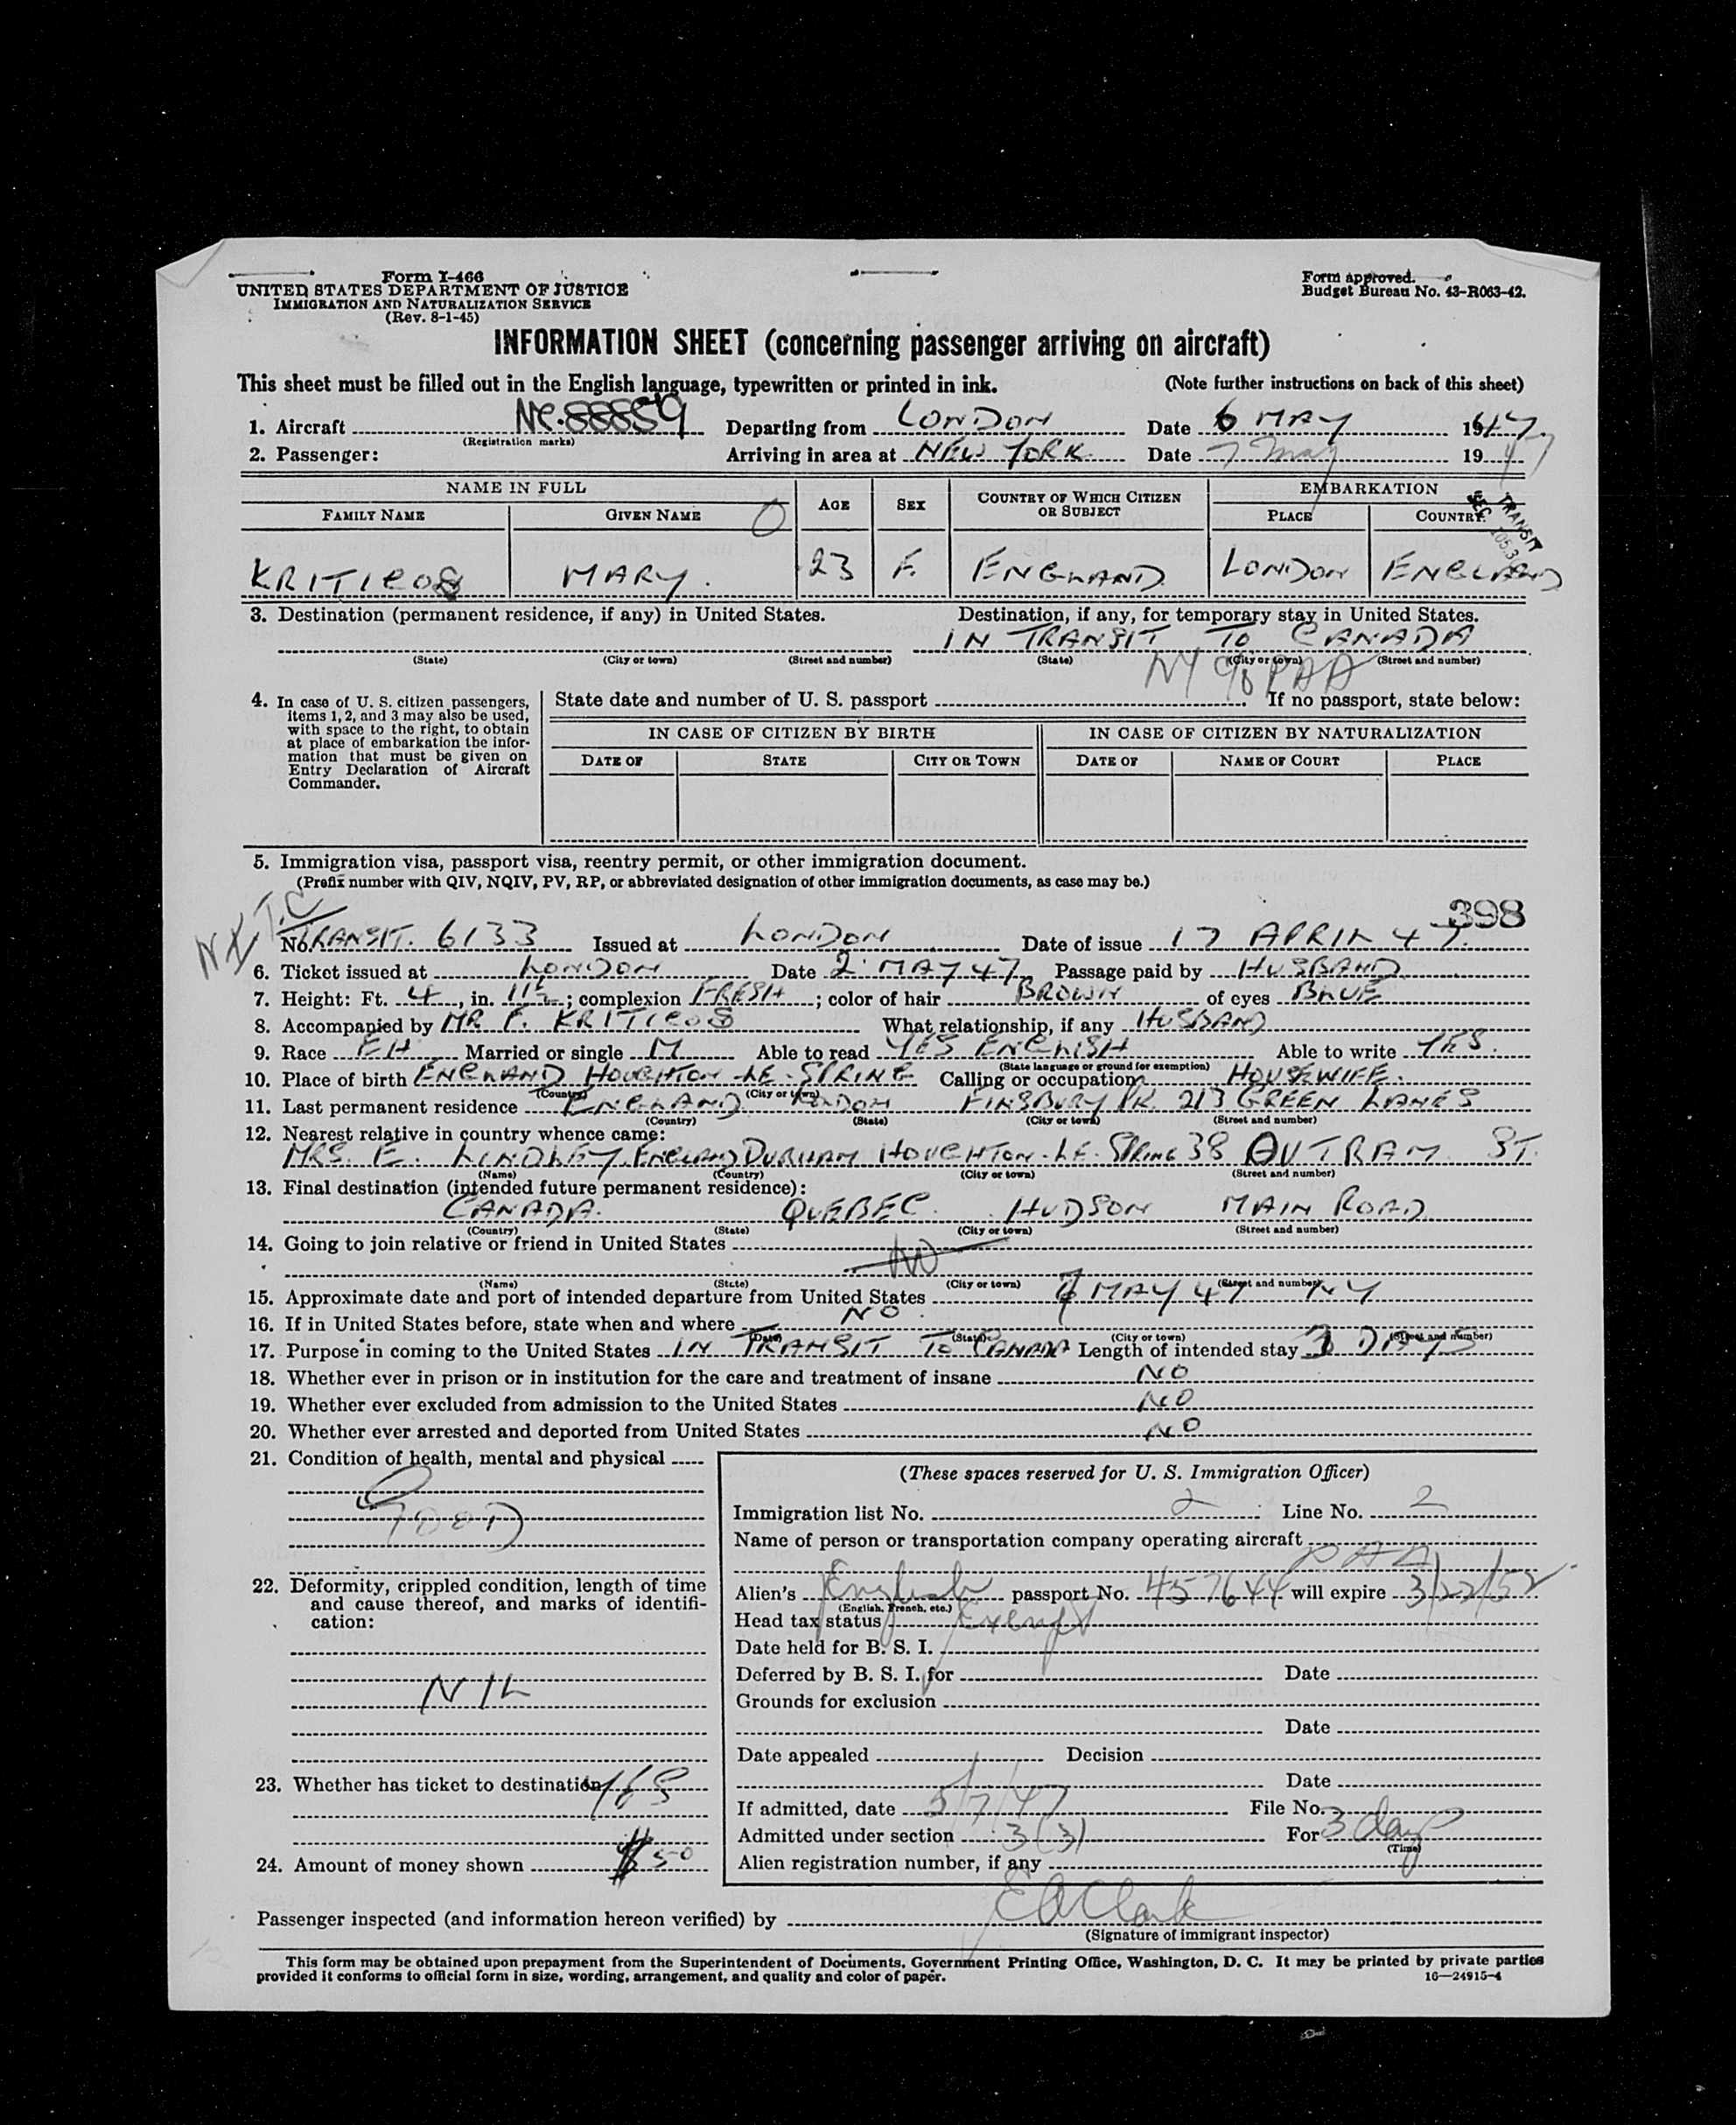 Form I-466
UNITED STATES DEPARTMENT OF JUSTICE
IMMIGRATION AND NATURALIZATION SERVICE
(Rev. 8-1-45)
Form approved.
Budget Bureau No. 43-R063-42.
INFORMATION SHEET (concerning passenger arriving on aircraft)
This sheet must be filled out in the English language, typewritten or printed in ink. (Note further instructions on back of this sheet)
1. Aircraft NC.88859 Departing from LONDON Date 6 MAY 1947.
(Registration marks)
2. Passenger: Arriving in area at NEW YORK Date 7 May 1947
NAME IN FULL AGE SEX COUNTRY OF WHICH CITIZEN OR SUBJECT EMBARKATION
FAMILY NAME GIVEN NAME PLACE COUNTRY
TRANSIT
SEC
KRITICOS MARY. 23 F. ENGLAND LONDON ENGLAND
3. Destination (permanent residence, if any) in United States. Destination, if any, for temporary stay in United States.
IN TRANSIT TO CANADA
(State) (City or town) (Street and number) (State) (City or town) (Street and number)
NY c/o PAA
4. In case of U. S. citizen passengers, items 1, 2, and 3 may also be used, with space to the right, to obtain at place of embarkation the information that must be given on Entry Declaration of Aircraft Commander.
State date and number of U. S. passport If no passport, state below:
IN CASE OF CITIZEN BY BIRTH IN CASE OF CITIZEN BY NATURALIZATION
DATE OF STATE CITY OR TOWN DATE OF NAME OF COURT PLACE
5. Immigration visa, passport visa, reentry permit, or other immigration document.
(Prefix number with QIV, NQIV, PV, RP, or abbreviated designation of other immigration documents, as case may be.)
398
No. TRANSIT. 6133 Issued at LONDON Date of issue 17 APRIL 47.
6. Ticket issued at LONDON Date 2 MAY 47 Passage paid by HUSBAND
7. Height: Ft. 4, in. 11½; complexion FRESH; color of hair BROWN of eyes BLUE
8. Accompanied by MR F. KRITICOS What relationship, if any HUSBAND
9. Race EH Married or single M Able to read YES ENGLISH Able to write YES.
(State language or ground for exemption)
10. Place of birth ENGLAND HOUGHTON-LE-SPRING Calling or occupation HOUSEWIFE.
(Country) (City or town)
11. Last permanent residence ENGLAND LONDON FINSBURY PK. 213 GREEN LANES
(Country) (State) (City or town) (Street and number)
12. Nearest relative in country whence came:
MRS. E. LINDLEY. ENGLAND DURHAM HOUGHTON-LE-SPRING 38 OUTRAM ST.
(Name) (Country) (City or town) (Street and number)
13. Final destination (intended future permanent residence):
CANADA. QUEBEC. HUDSON MAIN ROAD
(Country) (State) (City or town) (Street and number)
14. Going to join relative or friend in United States
NO
(Name) (State) (City or town) (Street and number)
15. Approximate date and port of intended departure from United States 7 MAY 47 NY
16. If in United States before, state when and where NO
(Date) (State) (City or town) (Street and number)
17. Purpose in coming to the United States IN TRANSIT TO CANADA Length of intended stay 3 DAYS
18. Whether ever in prison or in institution for the care and treatment of insane NO
19. Whether ever excluded from admission to the United States NO
20. Whether ever arrested and deported from United States NO
21. Condition of health, mental and physical
GOOD
22. Deformity, crippled condition, length of time and cause thereof, and marks of identification:
NIL
23. Whether has ticket to destination YES
24. Amount of money shown $50
(These spaces reserved for U. S. Immigration Officer)
Immigration list No. 2 Line No. 2
Name of person or transportation company operating aircraft
PAA
Alien's English passport No. 457644 will expire 3/22/52
(English, French, etc.)
Head tax status Exempt
Date held for B. S. I.
Deferred by B. S. I. for Date
Grounds for exclusion
Date
Date appealed Decision
Date
If admitted, date 5/7/47 File No.
Admitted under section 3(3) For 3 days
(Time)
Alien registration number, if any
Passenger inspected (and information hereon verified) by E A Clark
(Signature of immigrant inspector)
This form may be obtained upon prepayment from the Superintendent of Documents, Government Printing Office, Washington, D. C. It may be printed by private parties
provided it conforms to official form in size, wording, arrangement, and quality and color of paper. 16—24915-4